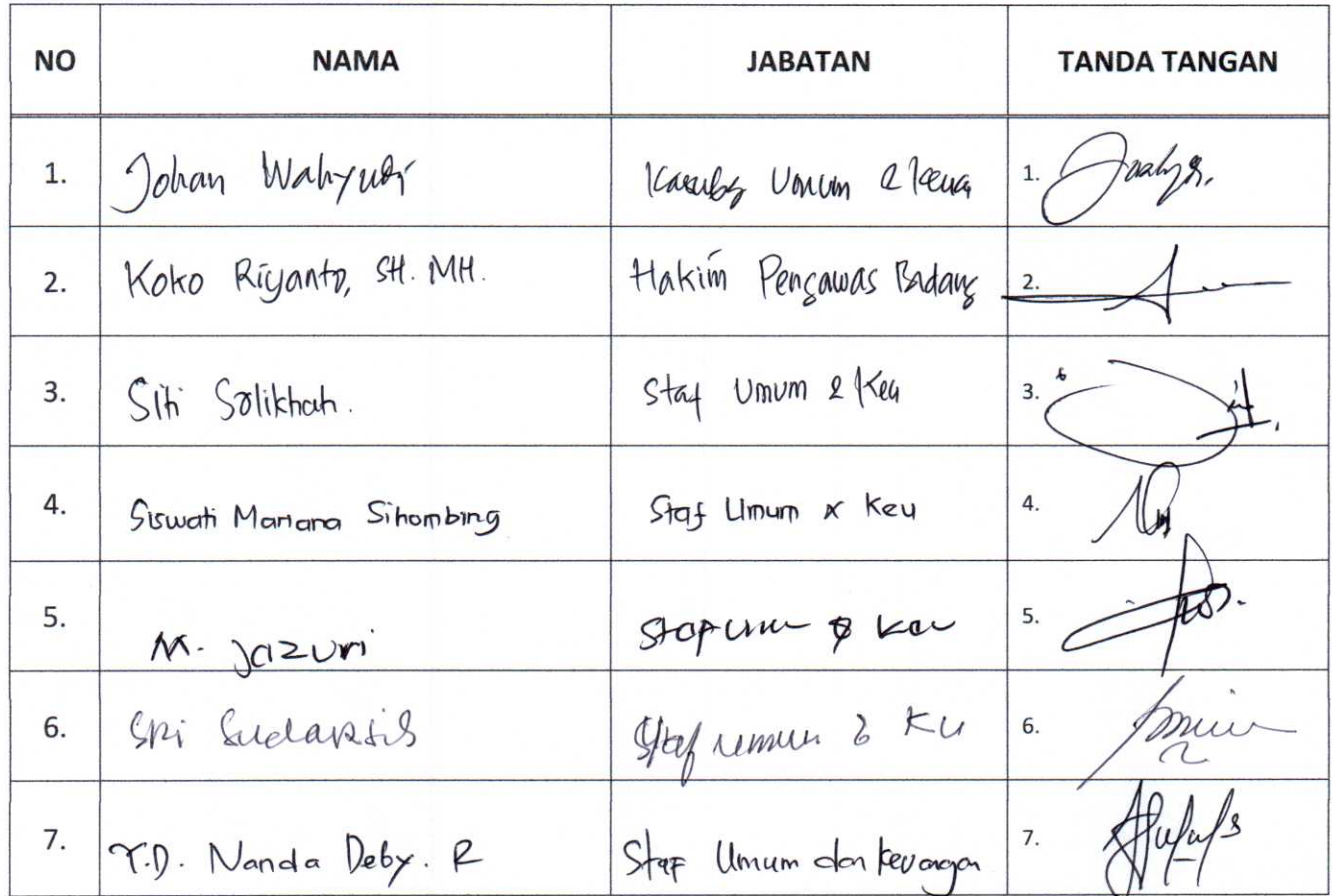 NO NAMA JABATAN TANDA TANGAN
1. Johan Wahyudi Kasubbg Umum & Keua 1.
2. Koko Riyanto, SH. MH. Hakim Pengawas Bidang 2.
3. Siti Solikhah. Staf Umum & Keu 3.
4. Siswati Mariana Sihombing Staf Umum & Keu 4.
5. M. Jazuri Staf umum & Keu 5.
6. Sri Sudarsih Staf umum & Ku 6.
7. Y.D. Nanda Deby. R Staf Umum dan Keuangan 7.